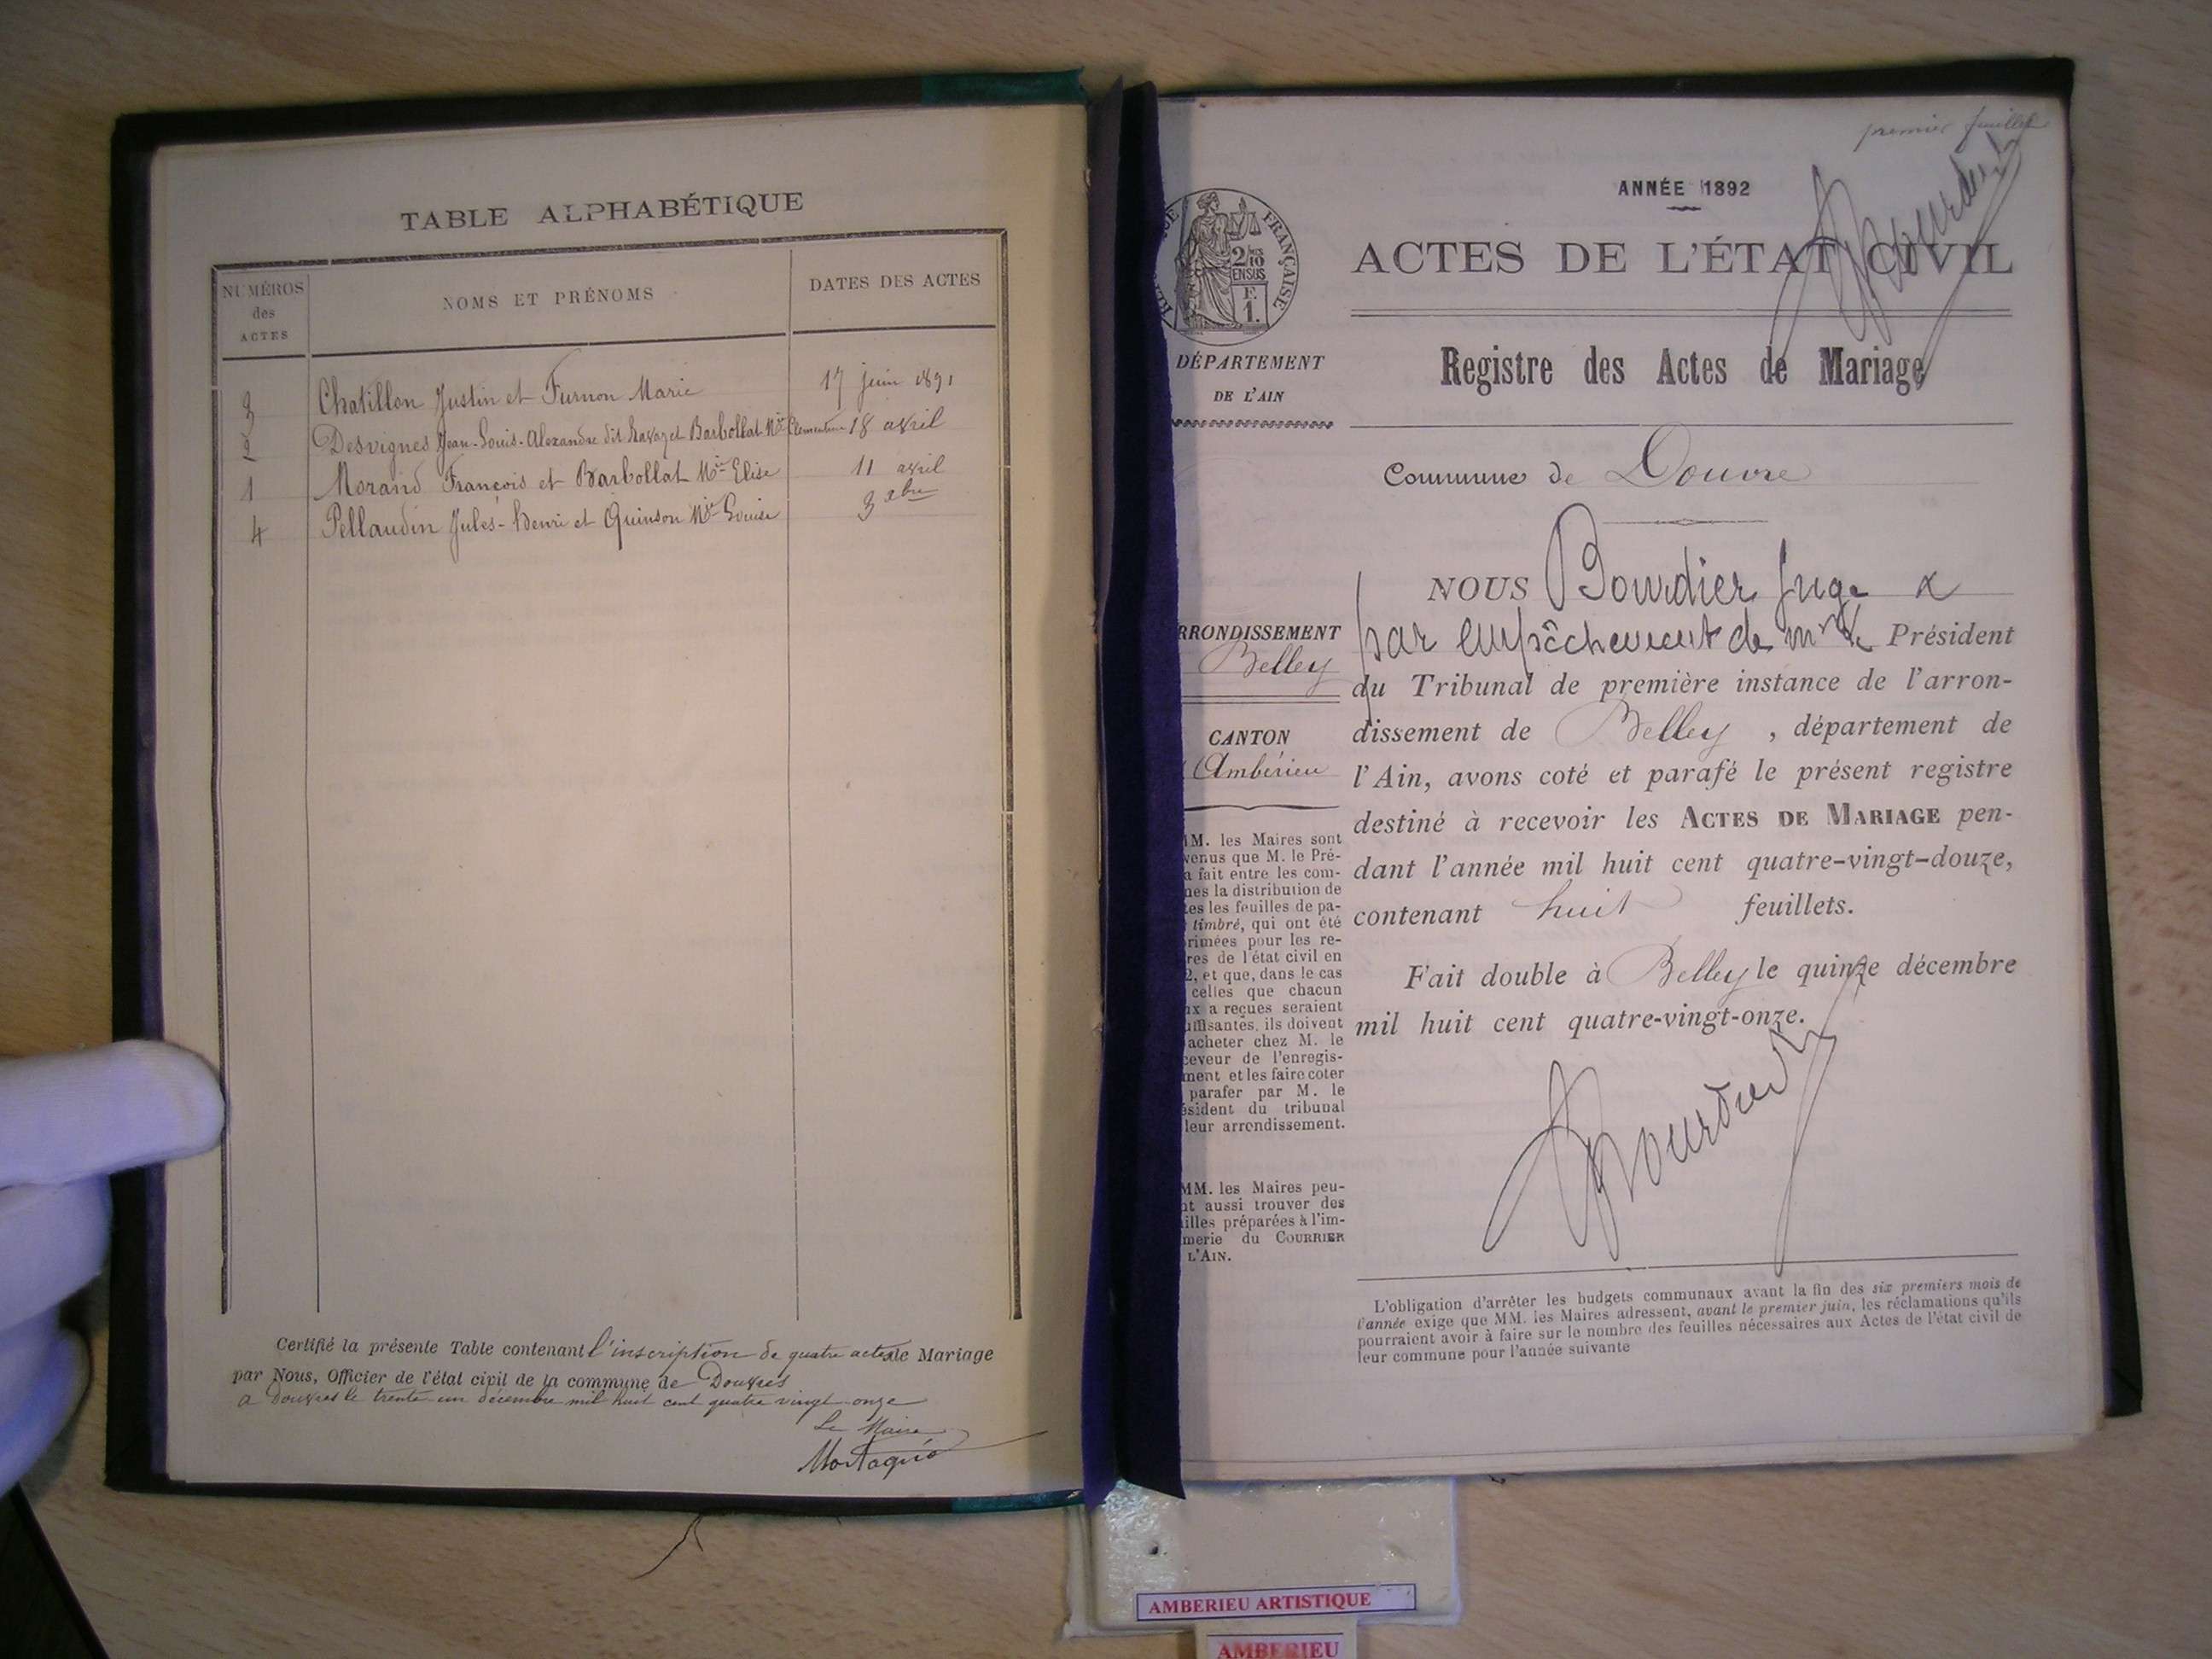 TABLE ALPHABÉTIQUE
NUMÉROS
des
ACTES
NOMS ET PRÉNOMS
DATES DES ACTES
3 Chatillon Justin et Furnon Marie 17 juin 1891
2 Desvignes Jean-Louis-Alexandre dit et Barbollat Mie Clementine 18 avril
1 Morand François et Barbollat Mie Elise 11 avril
4 Pellaudin Jules-Henri et Quinson Mie Louise 3 xbre
Certifié la présente Table contenant l'inscription de quatre actes de Mariage
par Nous, Officier de l'état civil de la commune de Douvres
a Douvres le trente un décembre mil huit cent quatre vingt onze
Le Maire
premier feuillet
Bourdier
ANNÉE 1892
FRANÇAISE
2/10
EN SUS
F.
1.
ACTES DE L'ÉTAT CIVIL
DÉPARTEMENT
DE L'AIN
Registre des Actes de Mariage
Commune de Douvre
RRONDISSEMENT
Belley
CANTON
d'Ambérieu
MM. les Maires sont
venus que M. le Pré-
a fait entre les com-
nes la distribution de
tes les feuilles de pa-
timbré, qui ont été
rimées pour les re-
res de l'état civil en
2, et que, dans le cas
celles que chacun
ux a reçues seraient
uffisantes, ils doivent
acheter chez M. le
ceveur de l'enregis-
ment et les faire coter
parafer par M. le
ésident du tribunal
leur arrondissement.
MM. les Maires peu-
nt aussi trouver des
illes préparées à l'im-
merie du COURRIER
L'AIN.
NOUS Bourdier Juge
par empêchement de Mr le Président
du Tribunal de première instance de l'arron-
dissement de Belley, département de
l'Ain, avons coté et parafé le présent registre
destiné à recevoir les ACTES DE MARIAGE pen-
dant l'année mil huit cent quatre-vingt-douze,
contenant huit feuillets.
Fait double à Belley le quinze décembre
mil huit cent quatre-vingt-onze.
Bourdier
L'obligation d'arrêter les budgets communaux avant la fin des six premiers mois de
l'année exige que MM. les Maires adressent, avant le premier juin, les réclamations qu'ils
pourraient avoir à faire sur le nombre des feuilles nécessaires aux Actes de l'état civil de
leur commune pour l'année suivante
AMBERIEU ARTISTIQUE
AMBERIEU